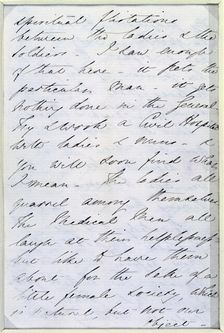 spiritual flirtations
between the ladies & the
soldiers. I saw enough
of that here - it
particular man - it gets
nothing done in the General
Try & work a Civil Hospl
with ladies & nurses - &
you will soon find what
I mean. The ladies all
quarrel among themselves
The Medical Men all
laugh at their helplessness
but like to have them
about for the sake of a
little female society which
is natural but not our
object